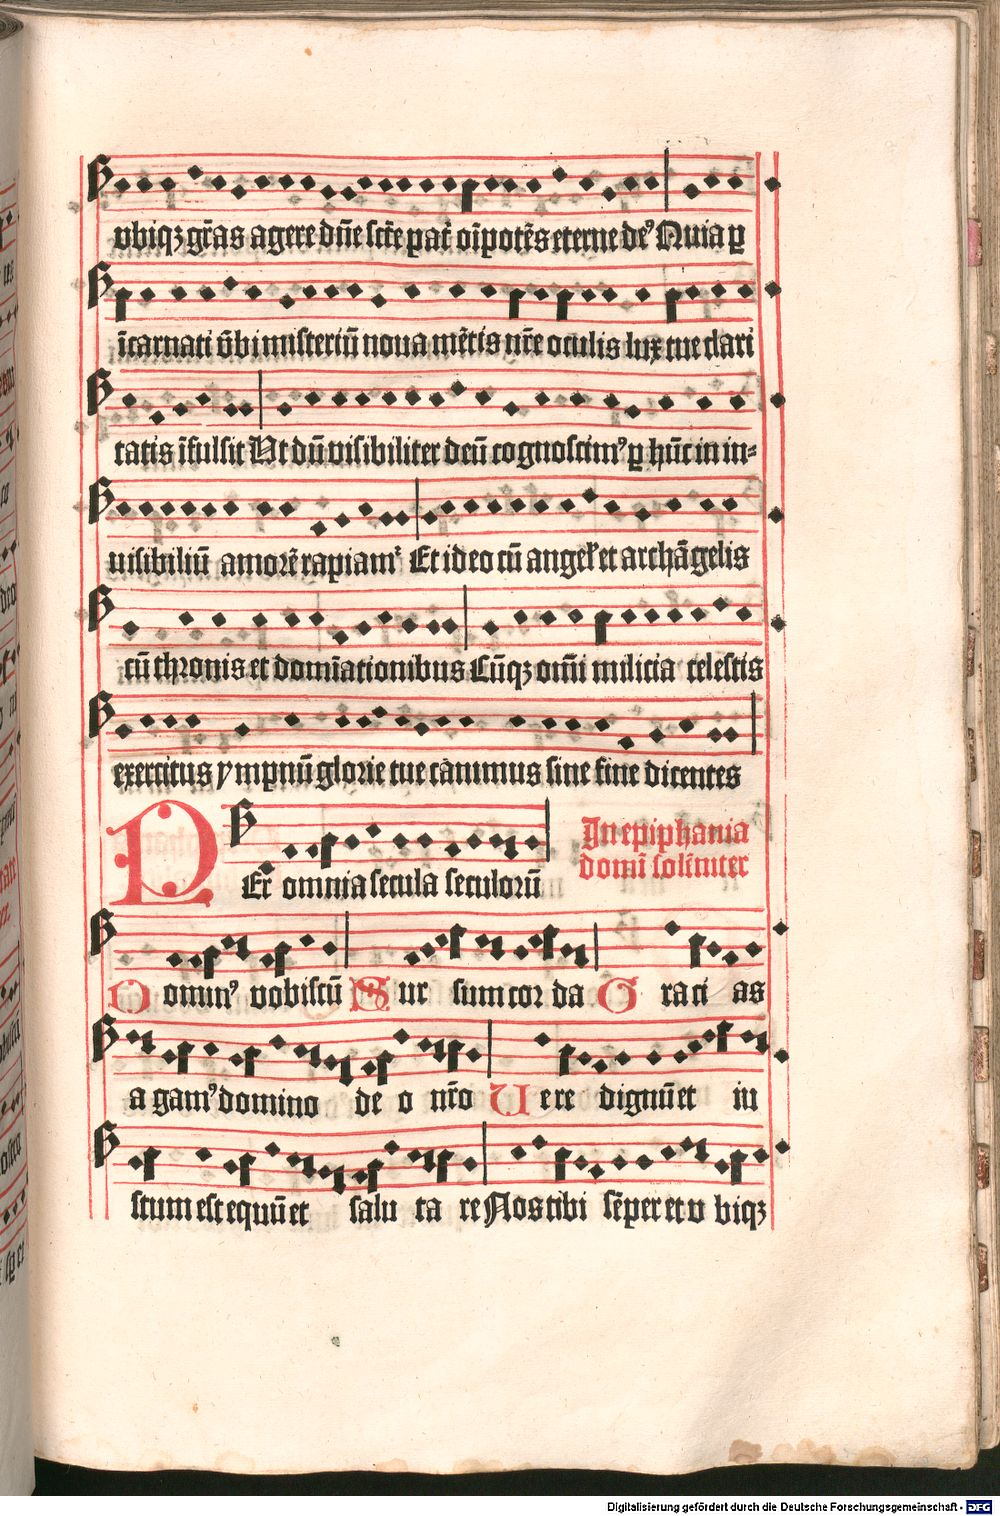 vbiqꝫ gr̄as agere dn̄e sct̄e pat̄ oīpotēs eterne de⁹ Nuia ꝑ
īcarnati v̄bi misteriū noua mētis nr̄e oculis lux tue clari
tatis īfulsit Vt dū visibiliter deū cognoscim⁹ ꝑ hūc in in⸗
uisibiliū amorē rapiamꝰ Et ideo cū angel' et archāgelis
cū thronis et domīationibus Cūqꝫ om̄i milicia celestis
exercitus ympnū glorie tue canimus sine fine dicentes
Per omnia secula seculorū
In epiphania
domī solēniter
Domin⁹ vobiscū Sursum corda Graci as
a gam⁹ domino de o nr̄o Uere dignū et iu
stum est equū et salu ta re Nos tibi sēper et v biqꝫ
Digitalisierung gefördert durch die Deutsche Forschungsgemeinschaft - DFG